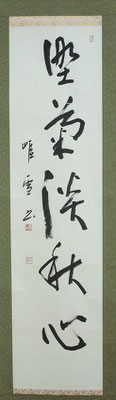 墨菊淡秋心
唯雪書